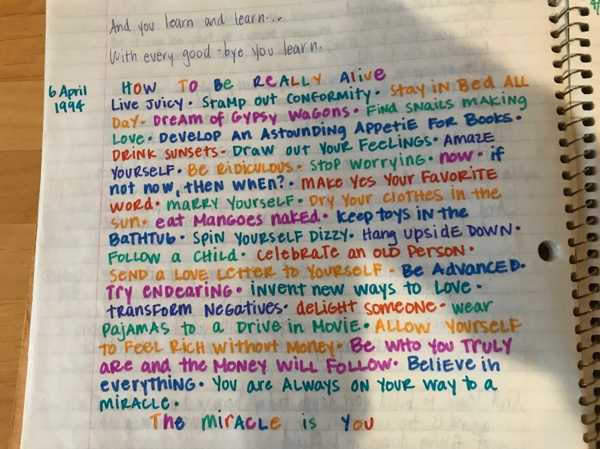 And you learn and learn....
With every good-bye you learn.
6 April
1994
HOW TO Be ReALLY Alive
Live Juicy • Stamp out conformity • Stay in Bed ALL
Day • Dream of Gypsy Wagons • Find snails making
Love • Develop an Astounding Appetie For Books •
Drink sunsets • Draw out your Feelings • Amaze
yourself • Be Ridiculous • Stop worrying • now • if
not now, then when? • Make yes your Favorite
word • marry yourself • Dry your clothes in the
sun • eat Mangoes naked • Keep toys in the
Bathtub • Spin yourself Dizzy • Hang upside Down •
Follow a child • Celebrate an old Person •
Send a Love Letter to yourself • Be Advanced •
Try endearing • invent new ways to Love •
transform negatives • delight someone • wear
pajamas to a Drive in Movie • Allow yourself
to Feel Rich without Money • Be who you truly
are and the Money will Follow • Believe in
everything • You are Always on your way to a
miracle •
The miracle is You